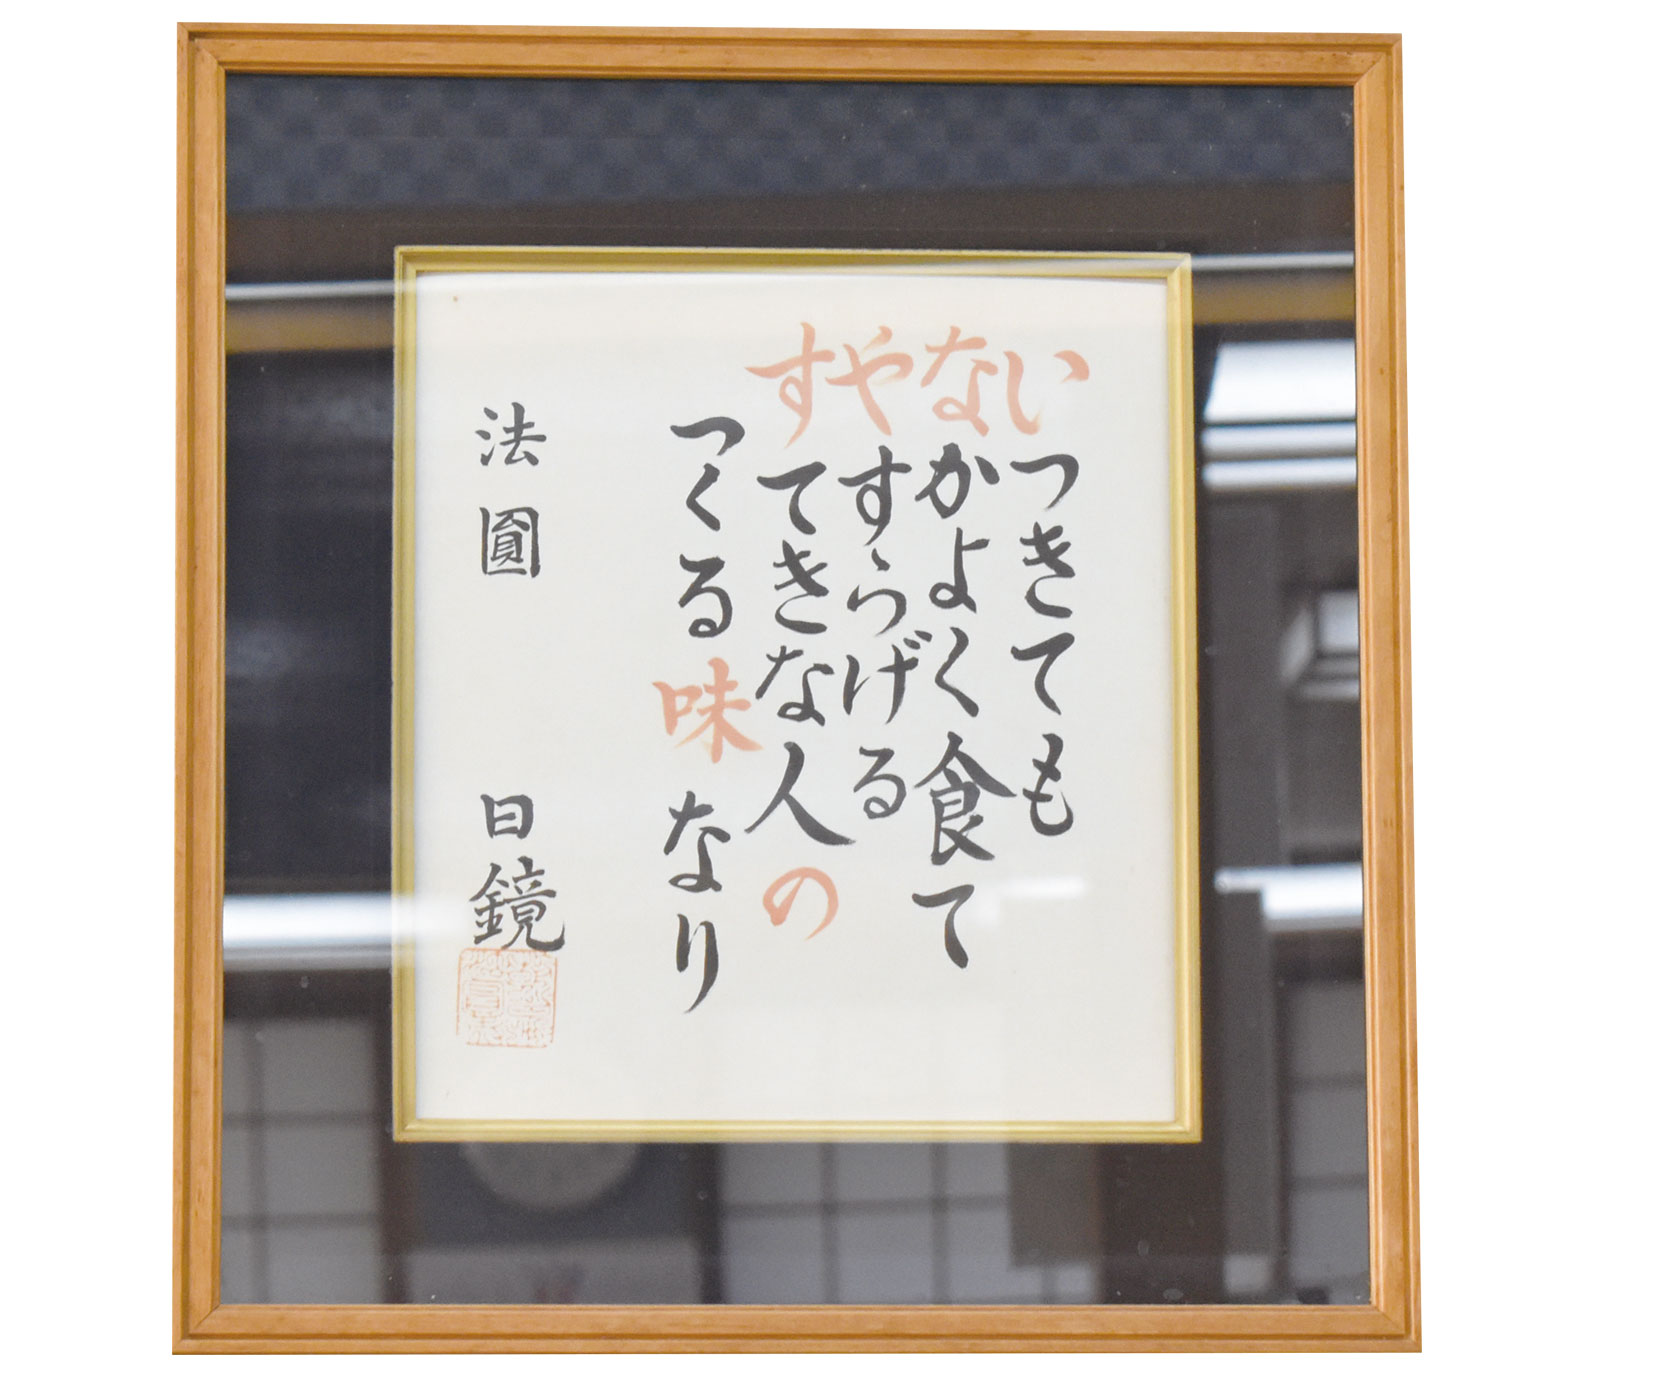 いつきても
なかよく食て
やすらげる
すてきな人の
つくる味なり
法圓 日鏡